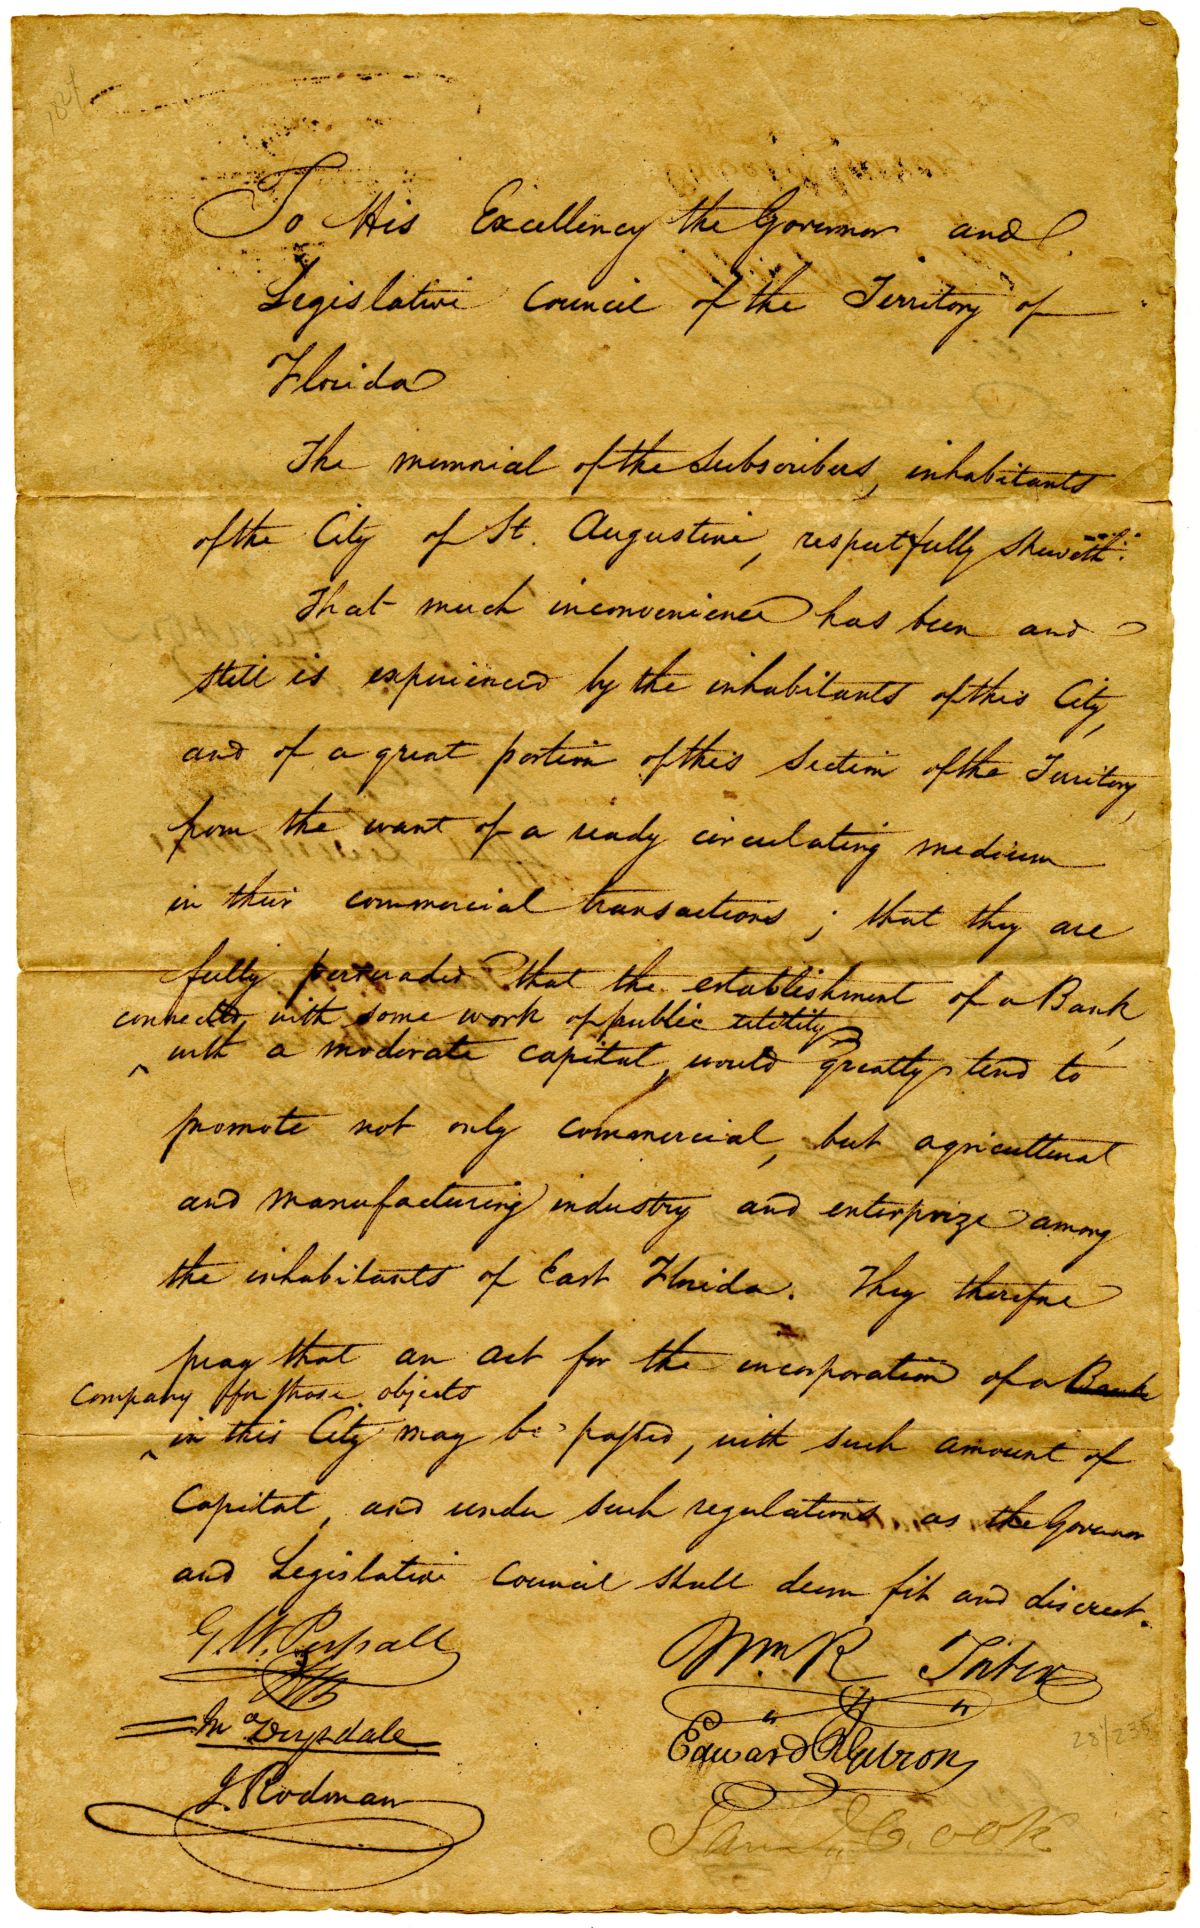 To His Excellency the Governor and
Legislative Council of the Territory of
Florida
The memorial of the Subscribers, inhabitants
of the City of St. Augustine, respectfully sheweth:
That much inconvenience has been and
still is experienced by the inhabitants of this City,
and of a great portion of this Section of the Territory,
from the want of a ready circulating medium
in their commercial transactions; that they are
fully persuaded that the establishment of a Bank,
connected with some work of public utility,
^ with a moderate capital, would greatly tend to
promote not only commercial, but agricultural
and manufacturing industry and enterprize among
the inhabitants of East Florida. They therefore
pray that an act for the incorporation of a Bank
Company for those objects
^ in this City may be passed, with such amount of
Capital, and under such regulations as the Governor
and Legislative Council shall deem fit and discreet.
G. W. Perpall
Wm R
Drysdale
Edward R Gibson
J. Rodman
Sam. Cook
281/235